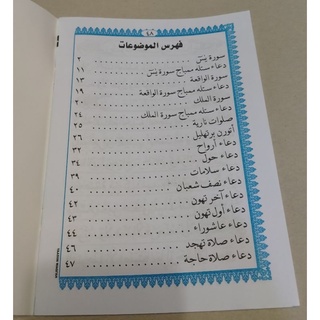 ٤٨
فهرس الموضوعات
سورة يس ٢
دعاء ستله ممباچ سورة يس ١١
سورة الواقعة ١٣
دعاء ستله ممباچ سورة الواقعة ١٩
سورة الملك ٢٠
دعاء ستله ممباچ سورة الملك ٢٤
صلوات نارية ٢٥
أتورن برتهليل ٢٦
دعاء أرواح ٣٢
دعاء حول ٣٤
دعاء سلامات ٣٩
دعاء نصف شعبان ٤٠
دعاء آخر تهون ٤٢
دعاء أول تهون ٤٣
دعاء عاشوراء ٤٤
دعاء صلاة تهجد ٤٦
دعاء صلاة حاجة ٤٧